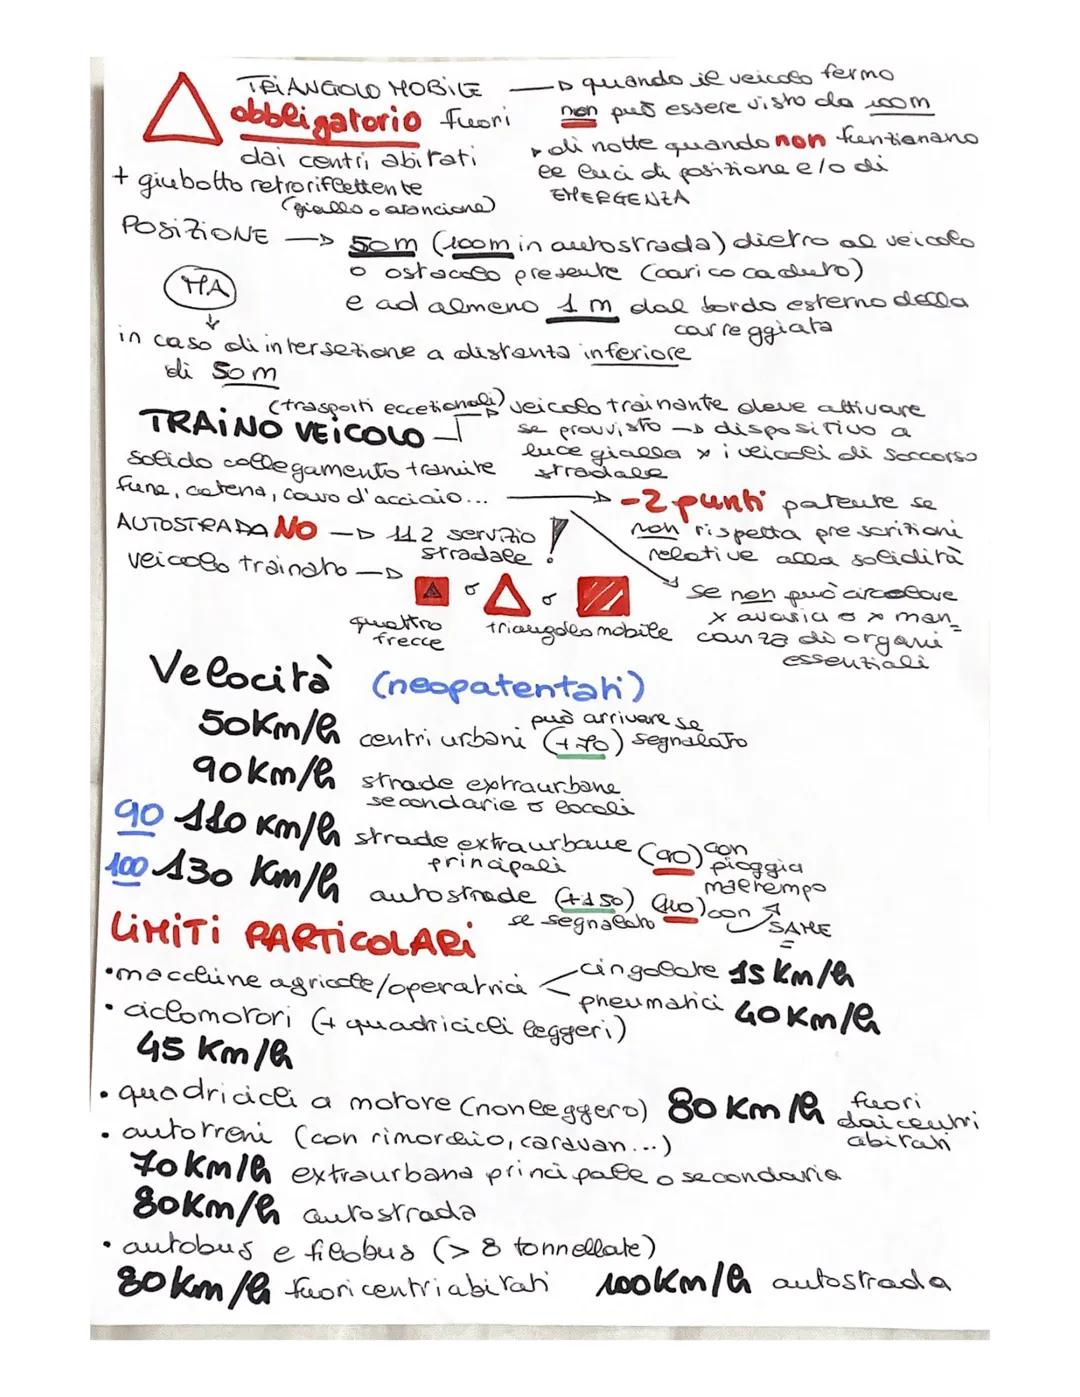 TRiANGOLO MOBiLE → quando il veicolo fermo
obbligatorio fuori non può essere visto da 100m
dai centri abitati → di notte quando non funzionano
+ giubotto retroriflettente le luci di posizione e/o di
(giallo o arancione) EMERGENZA
POSiZiONE → 50m (100m in autostrada) dietro al veicolo
o ostacolo presente (carico caduto)
MA e ad almeno 1 m dal bordo esterno della
carreggiata
in caso di intersezione a distanza inferiore
di 50m
(trasporti eccezionali) veicolo trainante deve attivare
TRAiNO VEiCOLO se provvisto → dispositivo a
luce gialla x i veicoli di soccorso
solido collegamento tramite stradale
fune, catena, cavo d'acciaio... → -2 punti patente se
AUTOSTRADA NO → 112 servizio ! non rispetta prescrizioni
stradale relative alla solidità
veicolo trainato → o o se non può circolare
quattro triangolo mobile x avaria o x man=
frecce canza di organi
essenziali
Velocità (neopatentati)
può arrivare se
50Km/h centri urbani (+70) segnalato
90Km/h strade extraurbane
secondarie o locali
90 110 Km/h strade extraurbane (90) con
principali pioggia
maltempo
100 130 Km/h autostrade (+150) (110) con
se segnalato SAME
LiMiTi PARTiCOLARi
•macchine agricole/operatrici cingolate 15 Km/h
pneumatici 40 Km/h
• ciclomotori (+ quadricicli leggeri)
45 Km/h
• quadricicli a motore (non leggero) 80 Km/h fuori
dai centri
abitati
• autotreni (con rimorchio, caravan...)
70 Km/h extraurbana principale o secondaria
80Km/h autostrada
• autobus e filobus (> 8 tonnellate)
80 Km/h fuori centri abitati 100Km/h autostrada